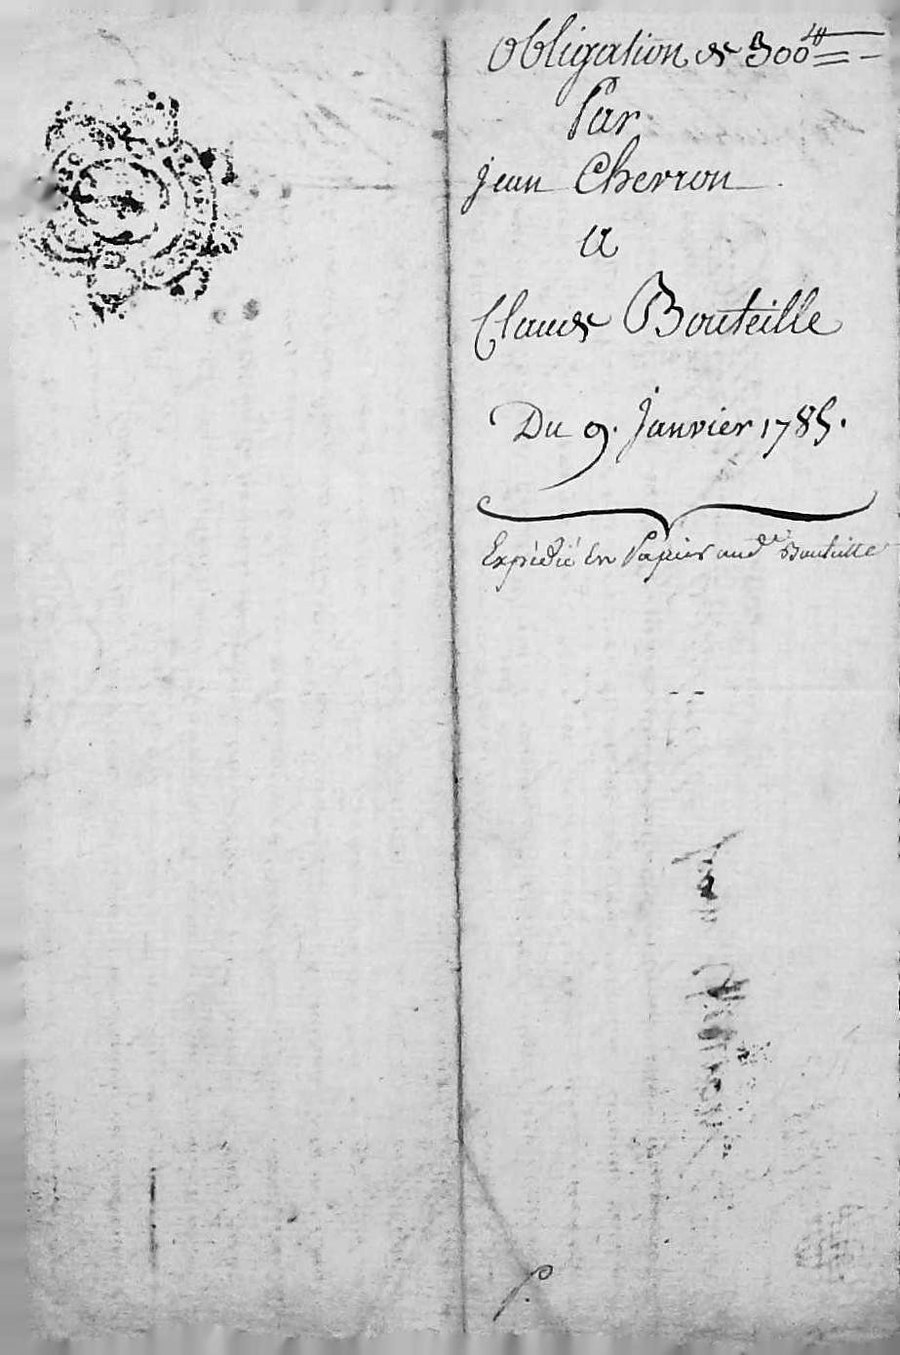 Obligation de 300 ₶
Par
jean Cherron
a
Claude Bouteille
Du 9. janvier 1785.
Expédié en Papier aud. Bouteille
jean